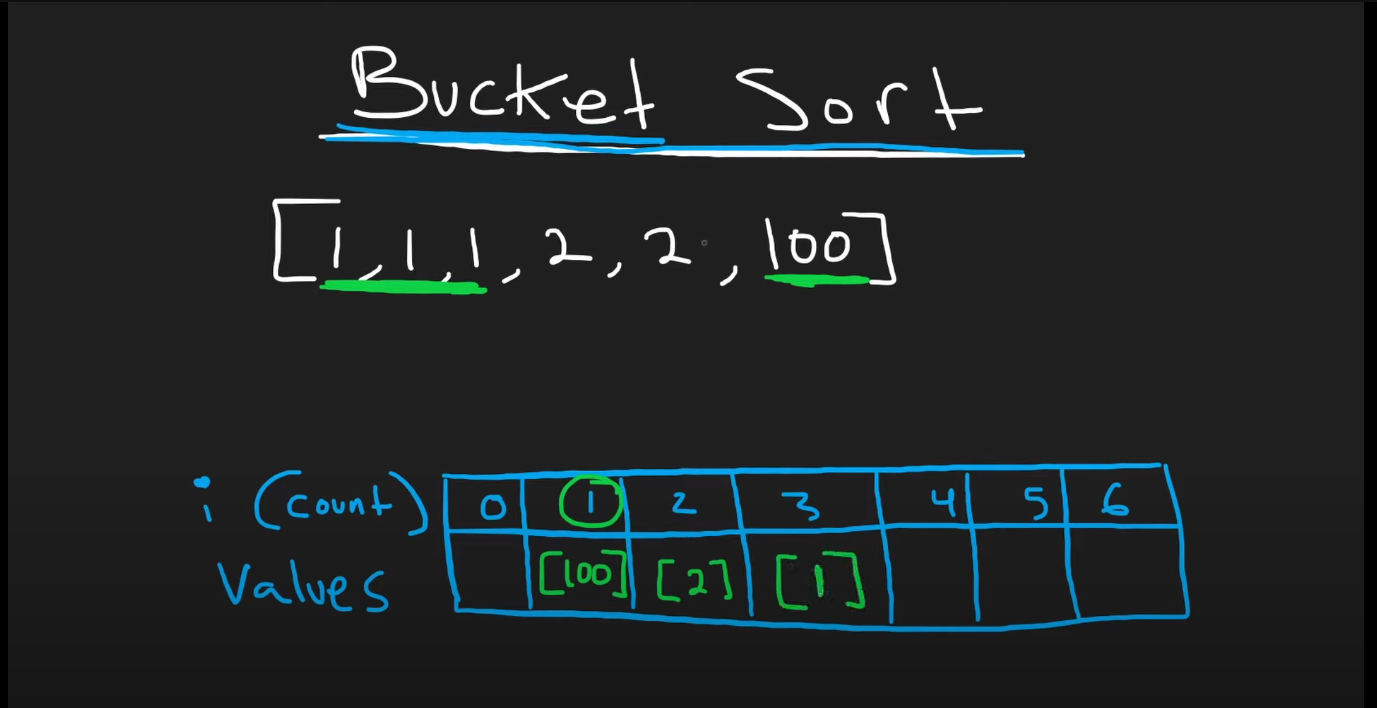 Bucket Sort
[1, 1, 1, 2, 2, 100]
i (count) 0 1 2 3 4 5 6
Values [100] [2] [1]